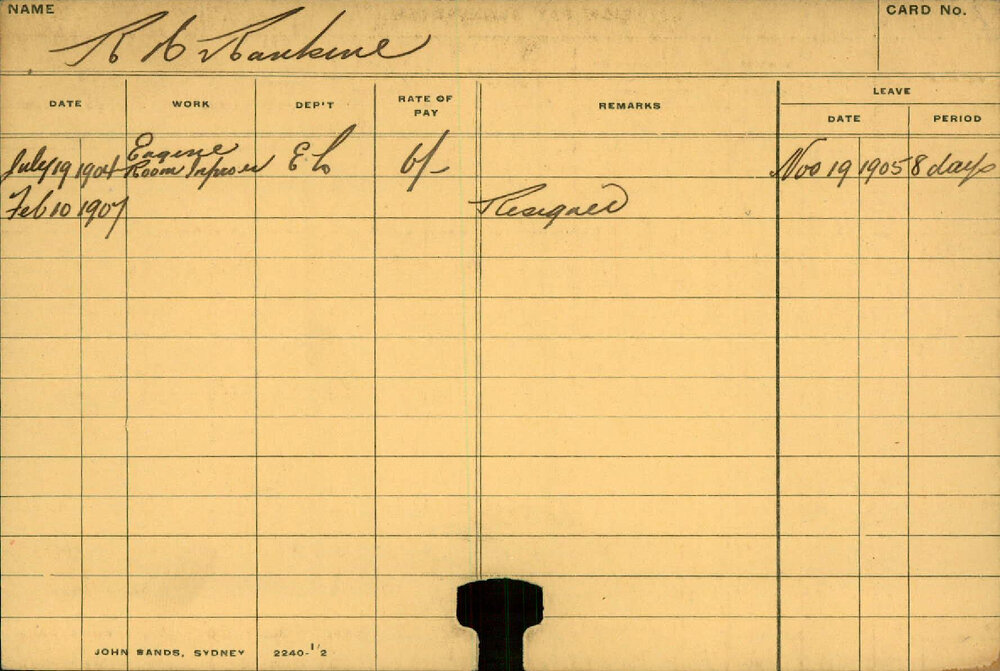 NAME
R H Rankine
CARD No.
DATE WORK DEP'T RATE OF PAY REMARKS LEAVE
DATE PERIOD
July 19 1904 Engine Room Improver E L 6/- Nov 19 1905 8 days
Feb 10 1907 Resigned
JOHN SANDS, SYDNEY 2240-1/2